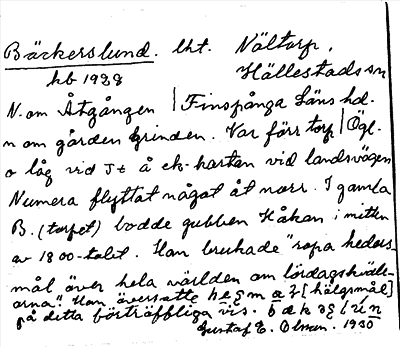 Bäckerslund. lht. Nältorp,
hb 1928 Hällestads sn
N. om Åtgången | Finspånga läns hd.
n om gården Grinden. Var förr torp | Ögl.
o låg vid St å ek-kartan vid landsvägen
Numera flyttat något åt norr. I gamla
B. (torpet) bodde gubben Håkan i mitten
av 1800-talet. Han brukade "ropa heders-
mål över hela världen om lördagskväll-
arna". Han översatte [hälgsmål]
på detta förträffliga vis.
Gustaf E. Olman. 1930